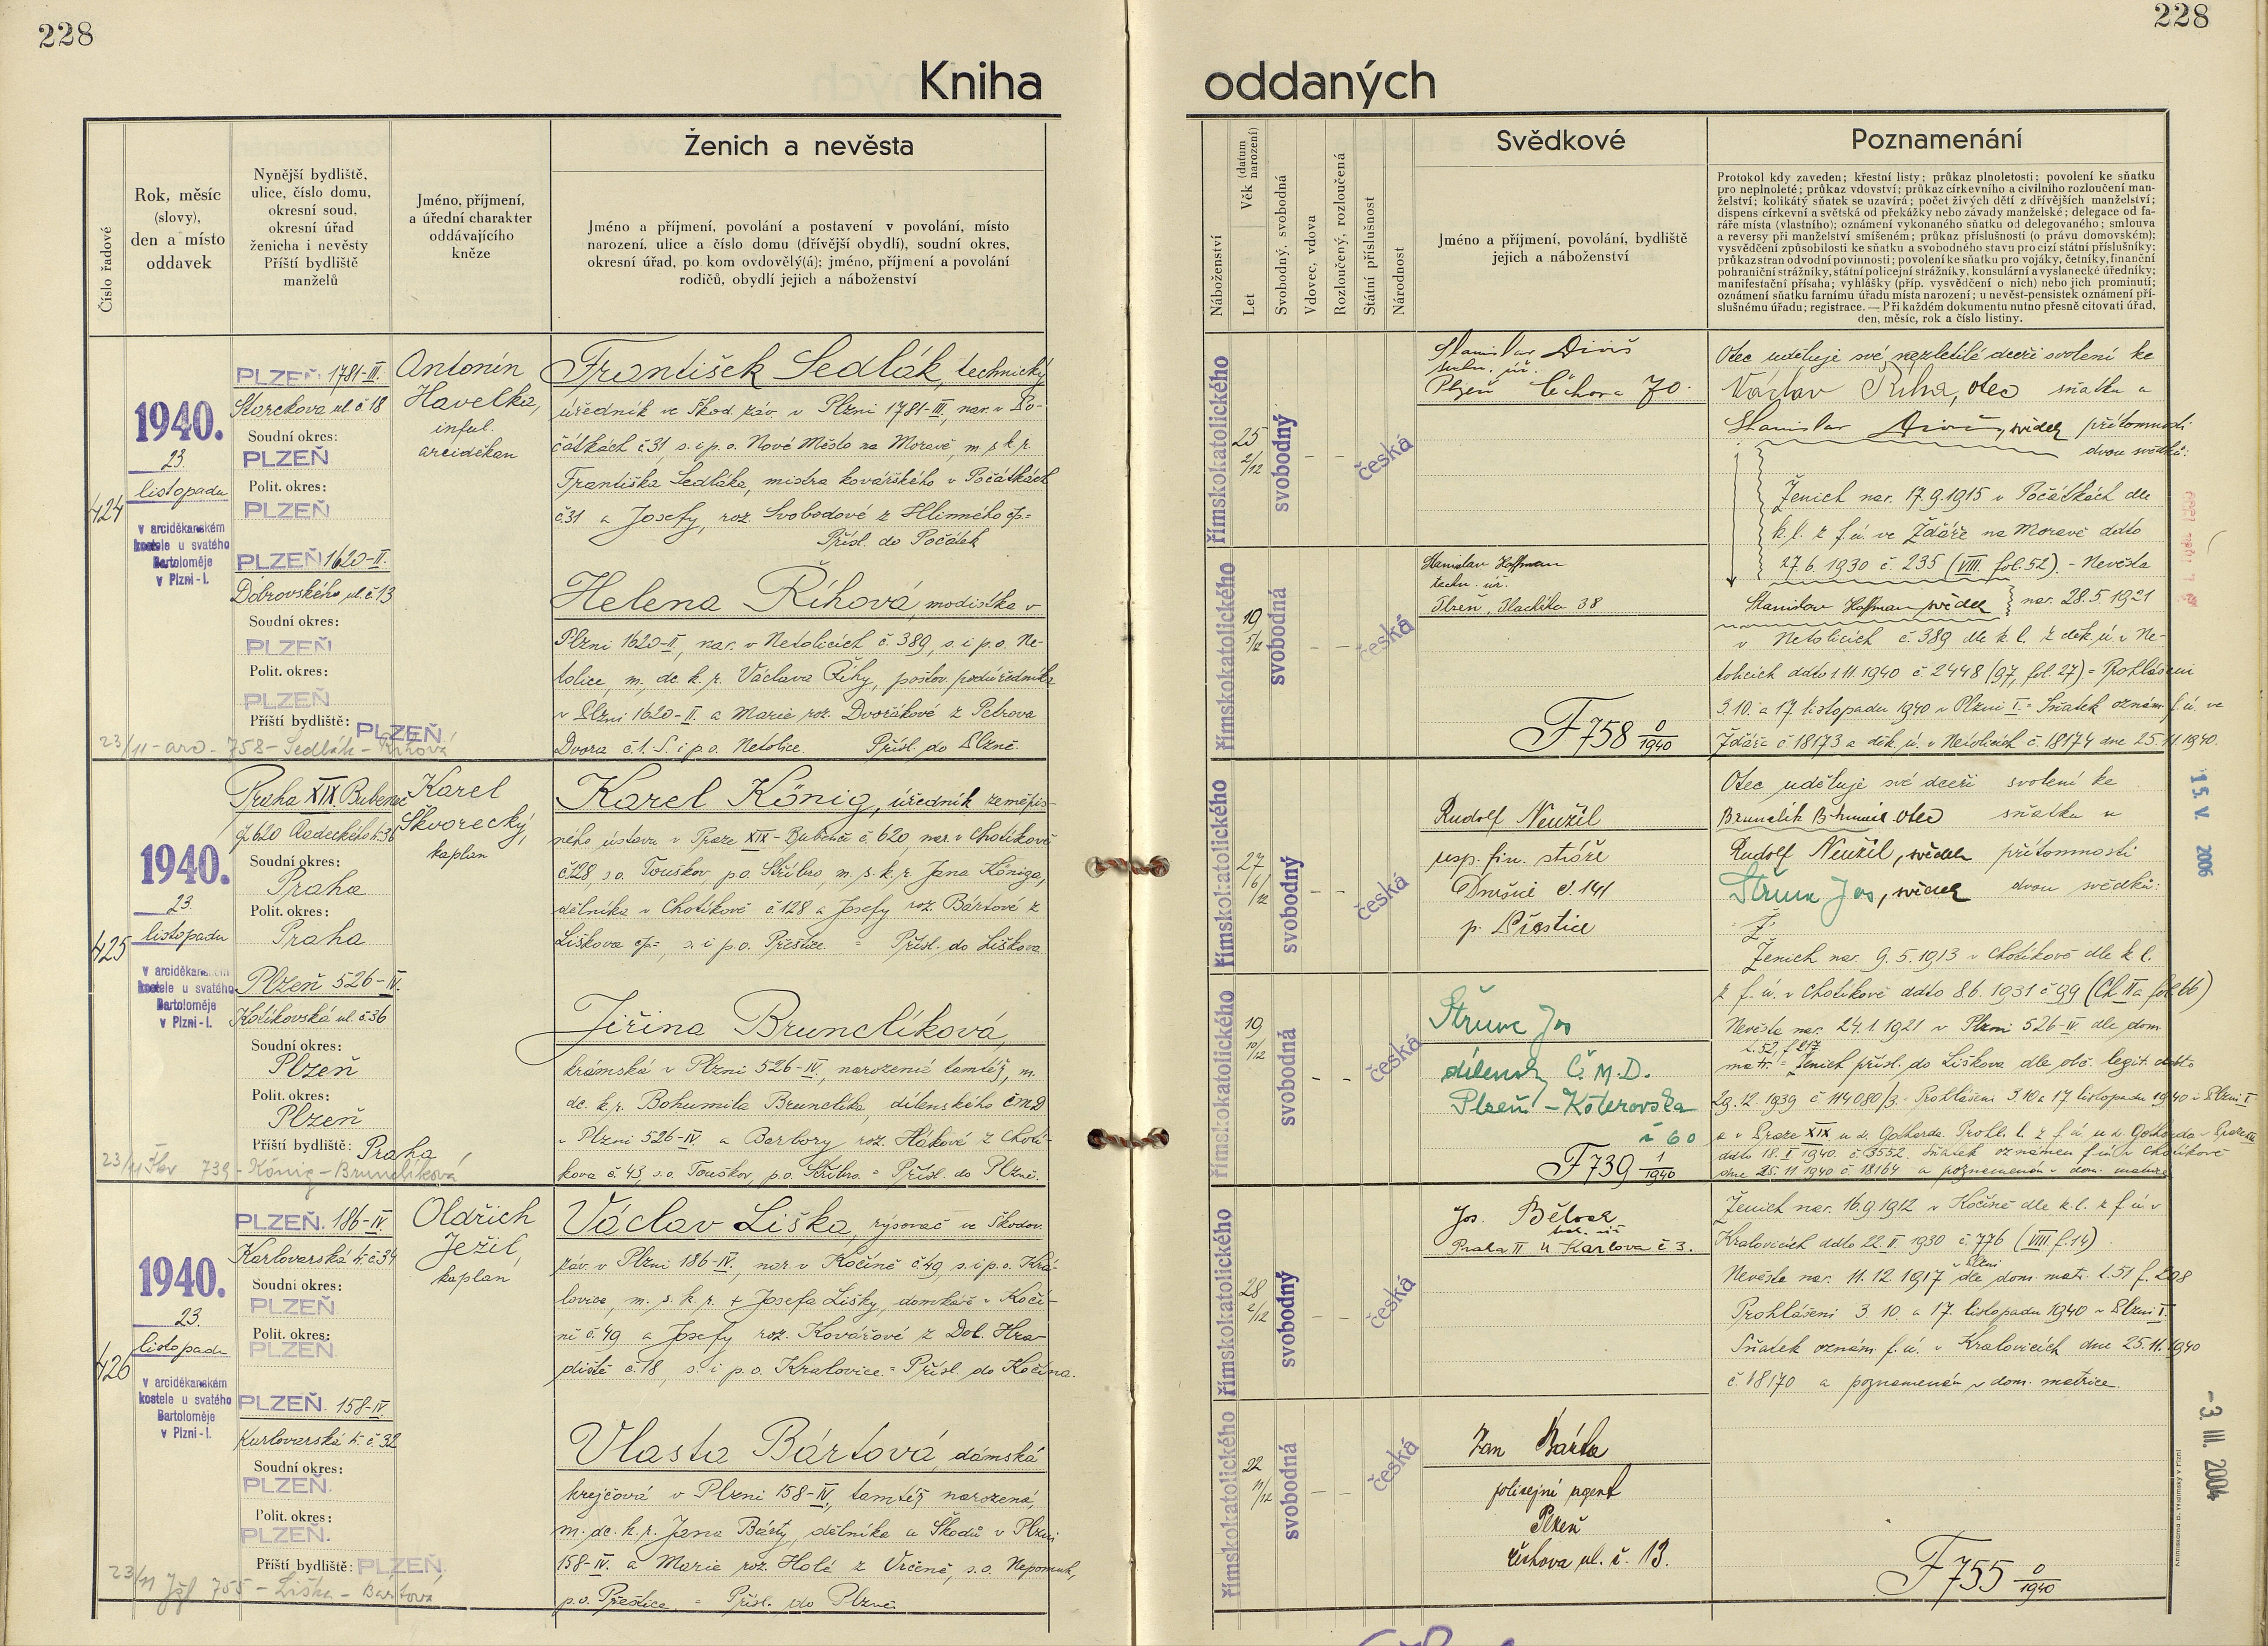 228
228
Kniha
oddaných
Číslo řadové
Rok, měsíc
(slovy),
den a místo
oddavek
Nynější bydliště,
ulice, číslo domu,
okresní soud,
okresní úřad
ženicha i nevěsty
Příští bydliště
manželů
Jméno, příjmení,
a úřední charakter
oddávajícího
kněze
Ženich a nevěsta
Jméno a příjmení, povolání a postavení v povolání, místo
narození, ulice a číslo domu (dřívější obydlí), soudní okres,
okresní úřad, po kom ovdovělý(á); jméno, příjmení a povolání
rodičů, obydlí jejich a náboženství
Náboženství
Věk (datum narození)
Let
Svobodný, svobodná
Vdovec, vdova
Rozloučený, rozloučená
Státní příslušnost
Národnost
Svědkové
Jméno a příjmení, povolání, bydliště
jejich a náboženství
Poznamenání
Protokol kdy zaveden; křestní listy; průkaz plnoletosti; povolení ke sňatku
pro neplnoleté; průkaz vdovství; průkaz církevního a civilního rozloučení man-
želství; kolikátý sňatek se uzavírá; počet živých dětí z dřívějších manželství;
dispens církevní a světská od překážky nebo závady manželské; delegace od fa-
ráře místa (vlastního); oznámení vykonaného sňatku od delegovaného; smlouva
a reversy při manželství smíšeném; průkaz příslušnosti (o právu domovském);
vysvědčení způsobilosti ke sňatku a svobodného stavu pro cizí státní příslušníky;
průkaz stran odvodní povinnosti; povolení ke sňatku pro vojáky, četníky, finanční
pohraniční strážníky, státní policejní strážníky, konsulární a vyslanecké úředníky;
manifestační přísaha; vyhlášky (příp. vysvědčení o nich) nebo jich prominutí;
oznámení sňatku farnímu úřadu místa narození; u nevěst-pensistek oznámení pří-
slušnému úřadu; registrace. — Při každém dokumentu nutno přesně citovati úřad,
den, měsíc, rok a číslo listiny.
424
1940.
23.
listopadu
v arciděkanském
kostele u svatého
Bartoloměje
v Plzni-I.
PLZEŇ 1781-III.
Štorchova ul. č 18
Soudní okres:
PLZEŇ
Polit. okres:
PLZEŇ
PLZEŇ 1620-II.
Dobrovského ul. č 13
Soudní okres:
PLZEŇ
Polit. okres:
PLZEŇ
Příští bydliště: PLZEŇ.
23/11 - arc. - 758 - Sedlák - Říhová
Antonín
Havelka,
inful.
arciděkan
František Sedlák, technický
úředník ve Škod. záv. v Plzni 1781-III, nar. v Po-
čátkách č 31, s. i p. o. Nové Město na Moravě, m. s. k. p.
Františka Sedláka, mistra kovářského v Počátkách
č. 31 a Josefy, roz. Svobodové z Hlinného čp=
Přísl. do Počátek
Helena Říhová, modistka v
Plzni 1620-II, nar. v Netolicích č. 389, s. i p. o. Ne-
tolice, m. dc. k. p. Václava Říhy, poštov. podúředníka
v Plzni 1620-II. a Marie roz. Dvořákové z Petrova
Dvora č. 1. S. i p. o. Netolice. Přísl. do Plzně.
římskokatolického
25
2/12
svobodný
česká
římskokatolického
19
5/12
svobodná
česká
Stanislav Diviš
techn. úř.
Plzeň Čechova 70.
Stanislav Hoffman
techn. úř.
Plzeň, Hladíka 38
F 758 0/1940
Otec uděluje své nezletilé dceři svolení ke
Václav Říha, otec sňatku a
Stanislav Diviš, svědek přítomnosti
dvou svědků:
Ženich nar. 17.9.1915 v Počátkách dle
k. l. z f. ú. ve Žďáře na Moravě ddto
27.6.1930 č. 235 (VIII. fol. 52). - Nevěsta
Stanislav Hoffman svědek nar. 28.5.1921
v Netolicích č. 389 dle k. l. z děk. ú. v Ne-
tolicích ddto 1.11.1940 č 2448 (97, fol. 27) = Prohlášeni
3. 10. a 17. listopadu 1940 v Plzni I. = Sňatek oznám. f. ú. ve
Žďáře č. 18173 a děk. ú. v Netolicích č. 18174 dne 25.11.1940.
425
1940.
23.
listopadu
v arciděkanském
kostele u svatého
Bartoloměje
v Plzni-I.
Praha XIX, Bubeneč
čp 620 Radeckého tř. 36
Soudní okres:
Praha
Polit. okres:
Praha
Plzeň 526-IV.
Kolikovská ul. č 36
Soudní okres:
Plzeň
Polit. okres:
Plzeň
Příští bydliště: Praha
23/11 Škv 739 - König - Brunclíková
Karel
Škvorecký,
kaplan
Karel König, úředník zeměpis-
ného ústavu v Praze XIX-Bubenči č 620 nar. v Chotíkově
č. 128, s. o. Touškov, p. o. Stříbro, m. s. k. p. Jana Königa,
dělníka v Chotíkově č. 128 a Josefy roz. Bártové z
Liškova čp=, s. i p. o. Přeštice. = Přísl. do Liškova
Jiřina Brunclíková,
krámská v Plzni 526-IV., narozená tamtéž, m.
dc. k. p. Bohumila Brunclíka, dílenského ČMD
v Plzni 526-IV. a Barbory roz. Hákové z Chotí-
kova č. 43, s. o. Touškov, p. o. Stříbro. = Přísl. do Plzně.
římskokatolického
27
6/12
svobodný
česká
římskokatolického
19
10/12
svobodná
česká
Rudolf Neužil
resp. fin. stráže
Dnešice č. 141
p. Přeštice
Štrunc Jos
dílensk Č.M.D.
Plzeň - Koterovska
č 60
F 739 1/1940
Otec uděluje své dceři svolení ke
Brunclík Bohumil otec sňatku u
Rudolf Neužil, svědek přítomnosti
Štrunc Jos, svědek dvou svědků:
Ž
Ženich nar. 9.5.1913 v Chotíkově dle k. l.
z f. ú. v Chotíkově ddto 8.6.1931 č 99 (Ch. IIa fol. 66)
Nevěsta nar. 24.1.1921 v Plzni 526-IV. dle dom.
t. 52, f. 217
matr. = Ženich přísl. do Liškova dle obč. legit. ddto
29.12.1939 č 114080/3. - Prohlášeni 3. 10. a 17 listopadu 1940 v Plzni I.
a v Praze XIX u sv. Gotharda. Prohl. l. z f. ú. u sv. Gotharda - Praze XIX
ddto 18.X.1940. č. 3552. Sňatek oznámen f. ú. v Chotíkově
dne 25.11.1940 č. 18164 a poznamenán v dom. matrice
15. V. 2006
426
1940.
23.
listopadu
v arciděkanském
kostele u svatého
Bartoloměje
v Plzni-I.
PLZEŇ. 186-IV.
Karlovarská tř. č 34
Soudní okres:
PLZEŇ
Polit. okres:
PLZEŇ.
PLZEŇ. 158-IV.
Karlovarská tř. č. 32
Soudní okres:
PLZEŇ.
Polit. okres:
PLZEŇ.
Příští bydliště: PLZEŇ.
23/11 Jžl 755 - Liška - Bártová
Oldřich
Ježil,
kaplan
Václav Liška, rýsovač ve Škodov.
záv. v Plzni 186-IV., nar. v Kočíně č. 49, s. i p. o. Kra-
lovice, m. s. k. p. + Josefa Lišky, domkáře v Kočí-
ně č. 49 a Josefy roz. Kovářové z Dol. Hra-
diště č. 18, s. i p. o. Kralovice = Přísl. do Kočína.
Vlasta Bártová, dámská
krejčová v Plzni 158-IV, tamtéž narozená,
m. dc. k. p. Jana Bárty, dělníka u Škodů v Plzni
158-IV. a Marie roz. Holé z Vrčeně, s. o. Nepomuk,
p. o. Přeštice. = Přísl. do Plzně.
římskokatolického
28
2/12
svobodný
česká
římskokatolického
22
11/12
svobodná
česká
Praha II u Karlova č 3.
Jan Bárta
policejní agent
Plzeň
Čechova ul. č. 13.
Ženich nar. 16.9.1912 v Kočíně dle k. l. z f. ú. v
Kralovicích ddto 22. II. 1930 č. 776 (VIII f. 14)
Nevěsta nar. 11.12.1917 v Plzni dle dom. matr. t. 51 f. 208
Prohlášeni 3. 10. a 17. listopadu 1940 v Plzni I.
Sňatek oznám. f. ú. v Kralovicích dne 25.11.1940
č. 18170 a poznamenán v dom. matrice.
F 755 0/1940
-3. III. 2004